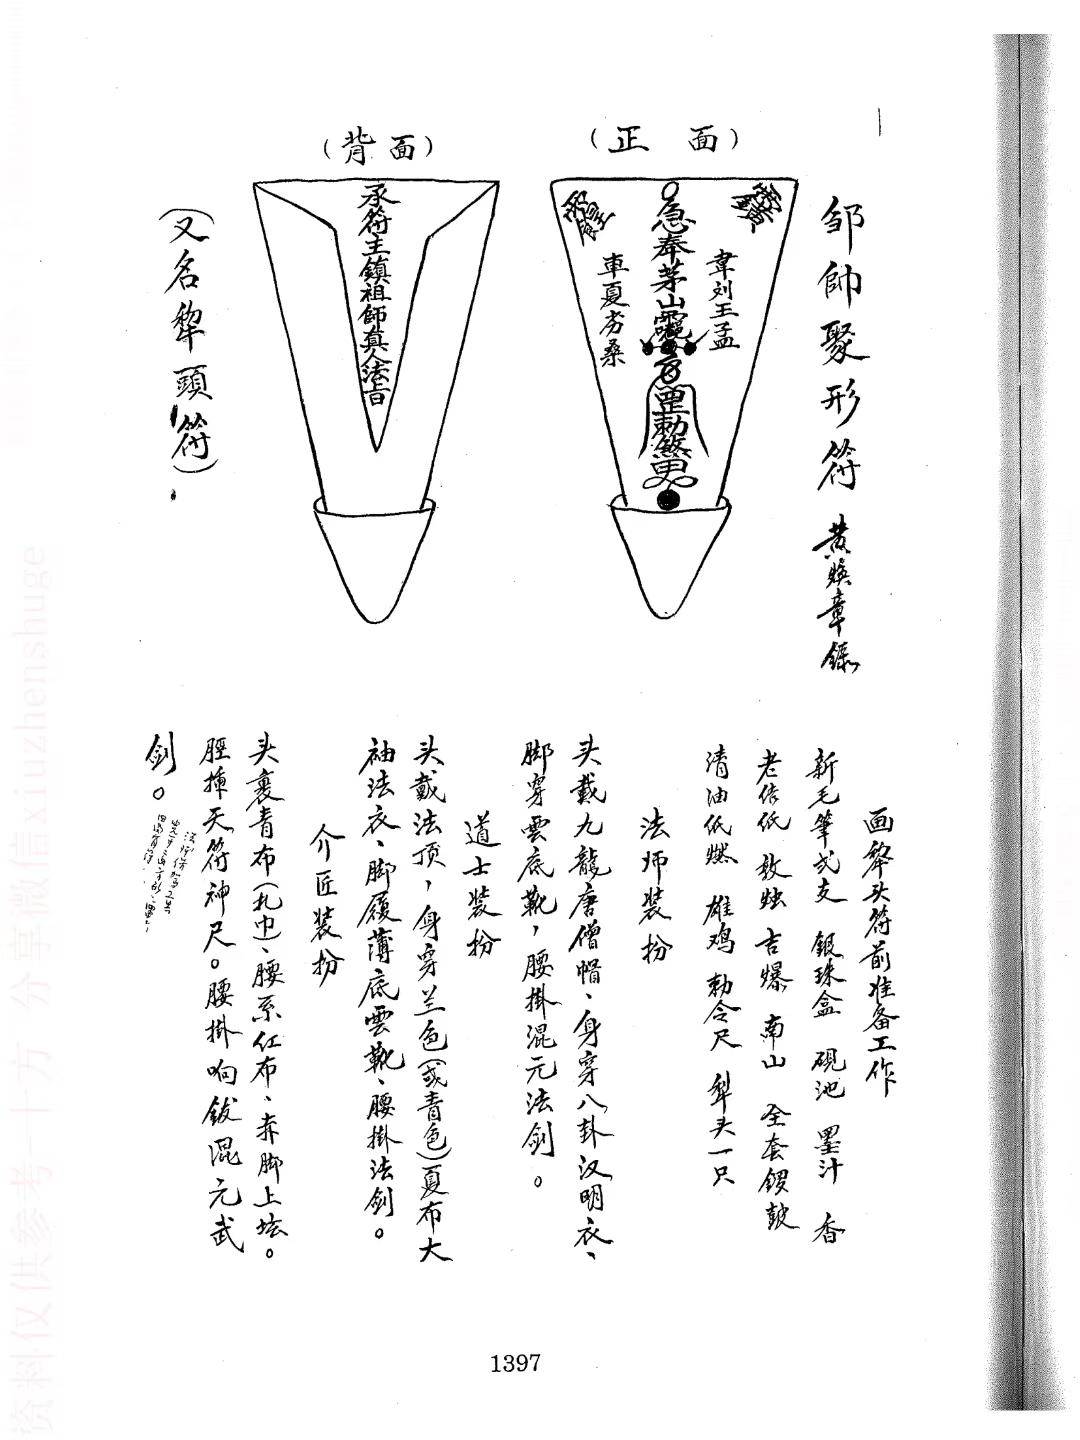 邹帥聚形符 黄焕章錄
(正面)
韋刘王孟
急奉茅山靈
罡勅煞
車夏夯桑
(背面)
承符主鎮祖師真人法旨
(又名犂頭符)
画犂头符前准备工作
新毛筆弍支 银珠盒 砚池 墨汁 香
老俵纸 数烛 吉爆 南山 全套锣鼓
清油纸燃 雄鸡 勅令尺 犁头一只
法师装扮
头戴九龍唐僧帽、身穿八卦汉明衣、
脚穿雲底靴，腰掛混元法剑。
道士装扮
头戴法顶，身穿兰色(或青色)夏布大
袖法衣、脚履薄底雲靴、腰掛法剑。
介匠装扮
头裹青布(扎巾)、腰系红布、赤脚上坛。
脛揷天符神尺。腰掛响鈸混元武
剑。
1397
资料仅供参考 十方 分享微信xiuzhenshuge